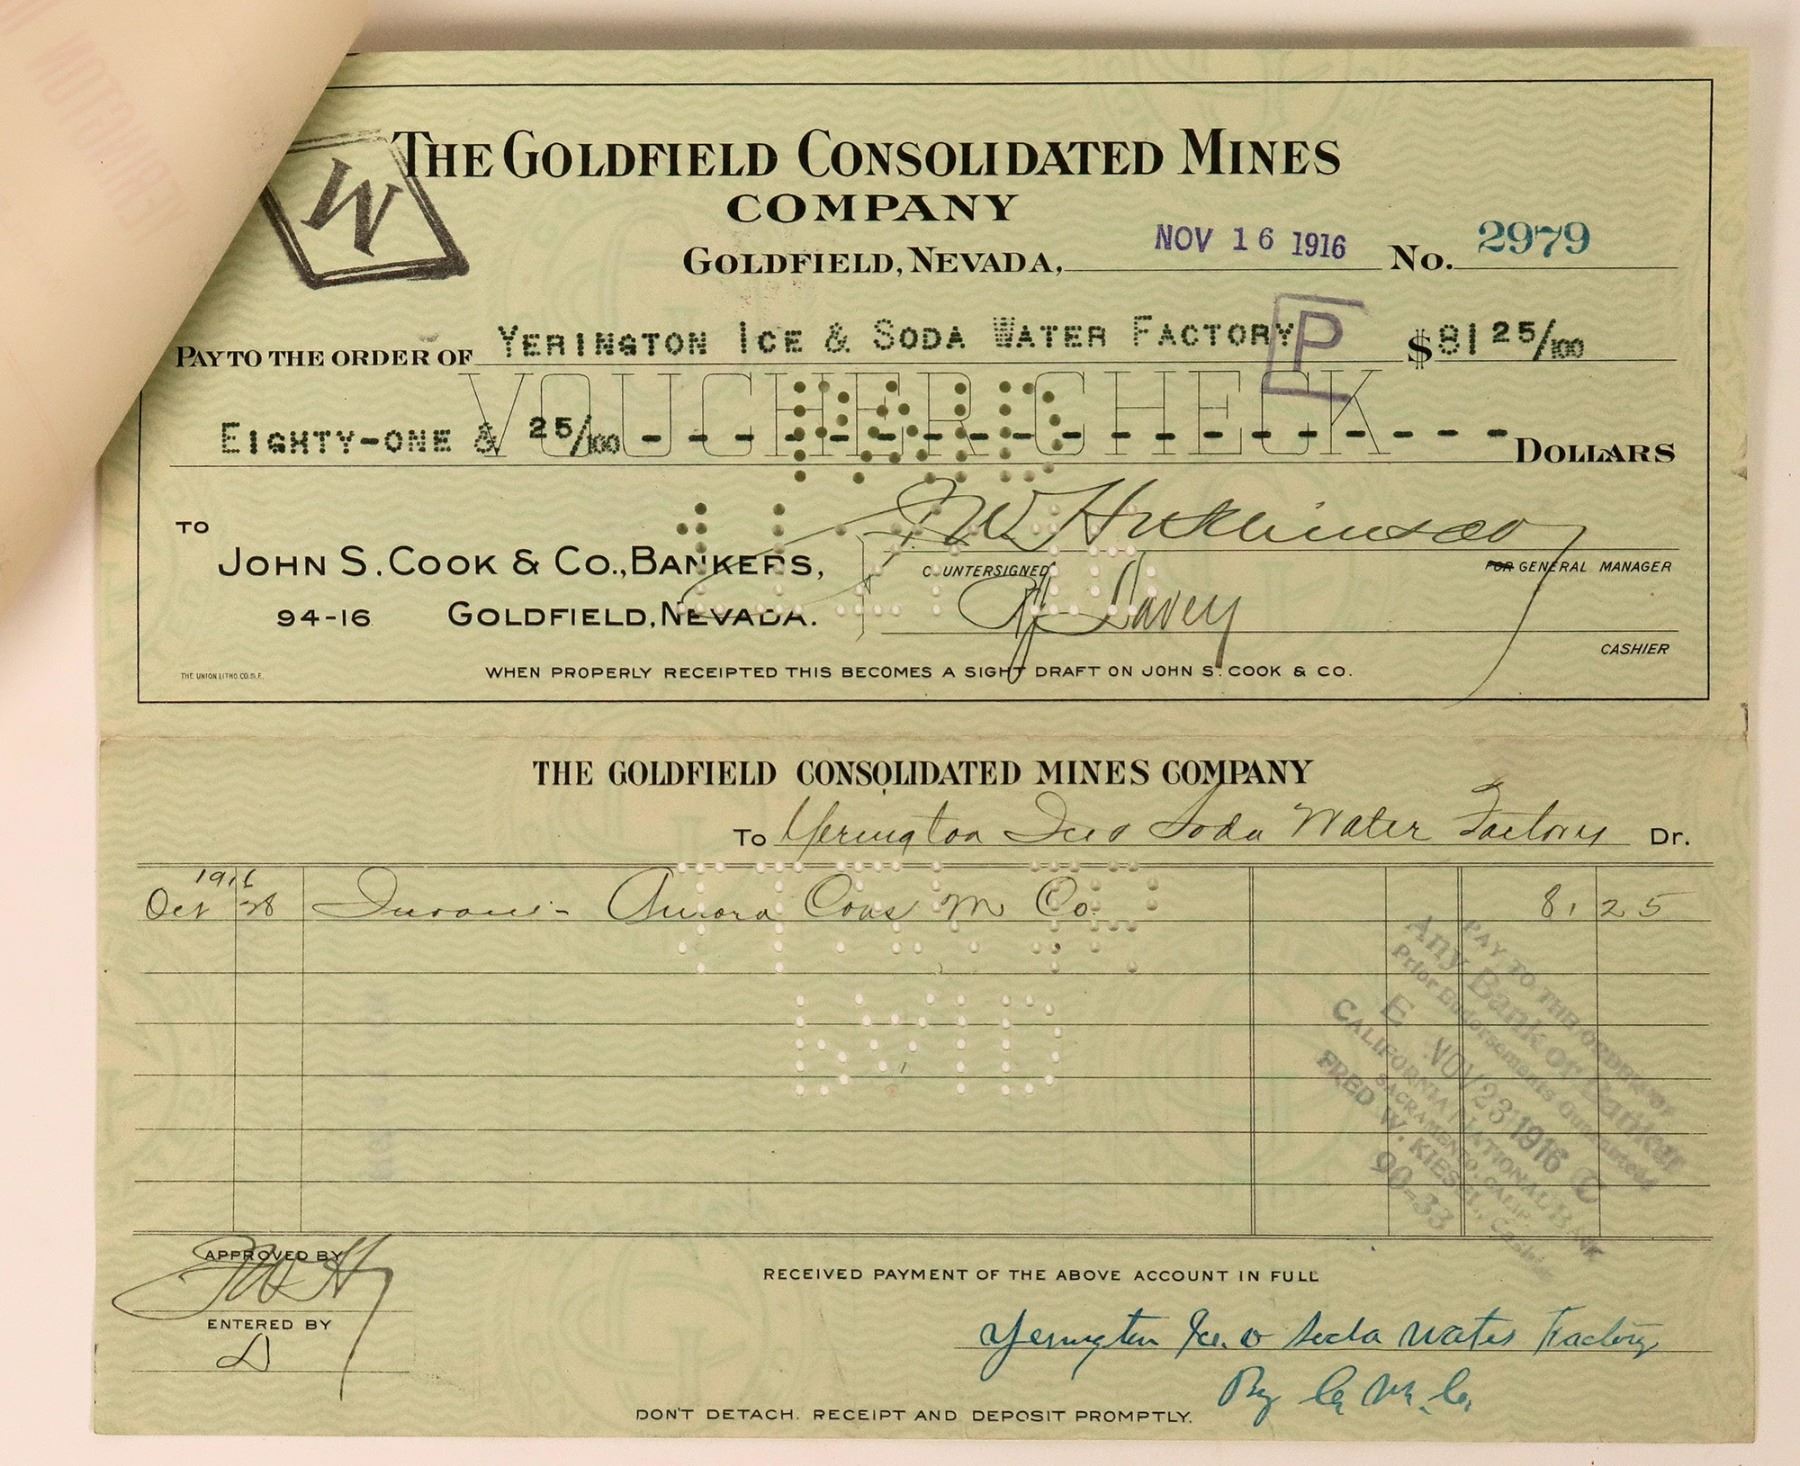 THE GOLDFIELD CONSOLIDATED MINES
COMPANY
GOLDFIELD, NEVADA, NOV 16 1916 No. 2979
W
PAY TO THE ORDER OF YERINGTON ICE & SODA WATER FACTORY $81 25/100
P
VOUCHER CHECK
EIGHTY-ONE & 25/100 - - - - - - - - - - - - - - - - - - - DOLLARS
PAID
TO
JOHN S. COOK & CO., BANKERS,
94-16 GOLDFIELD, NEVADA.
COUNTERSIGNED
FOR GENERAL MANAGER
Davey
CASHIER
THE UNION LITHO. CO. S.F.
WHEN PROPERLY RECEIPTED THIS BECOMES A SIGHT DRAFT ON JOHN S. COOK & CO.
THE GOLDFIELD CONSOLIDATED MINES COMPANY
TO Yerington Ice & Soda Water Factory DR.
1916
Oct 28 Aurora Cons M Co. 81 25
PAY TO THE ORDER OF
Any Bank or Banker
Prior Endorsements Guaranteed
E NOV 23 1916 C
CALIFORNIA NATIONAL BANK
SACRAMENTO, CALIF.
FRED W. KIESEL, Cashier
90-33
APPROVED BY
ENTERED BY
D
RECEIVED PAYMENT OF THE ABOVE ACCOUNT IN FULL
Yerington Ice & Soda Water Factory
DON'T DETACH. RECEIPT AND DEPOSIT PROMPTLY.